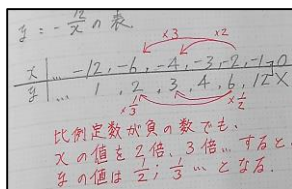 y = -12/x の表
×3 ×2
x … -12, -6, -4, -3, -2, -1, 0
y … 1 2 3 4 6 12 X
×1/3 ×1/2
比例定数が負の数でも、
xの値を2倍、3倍…すると、
yの値は1/2、1/3…となる。